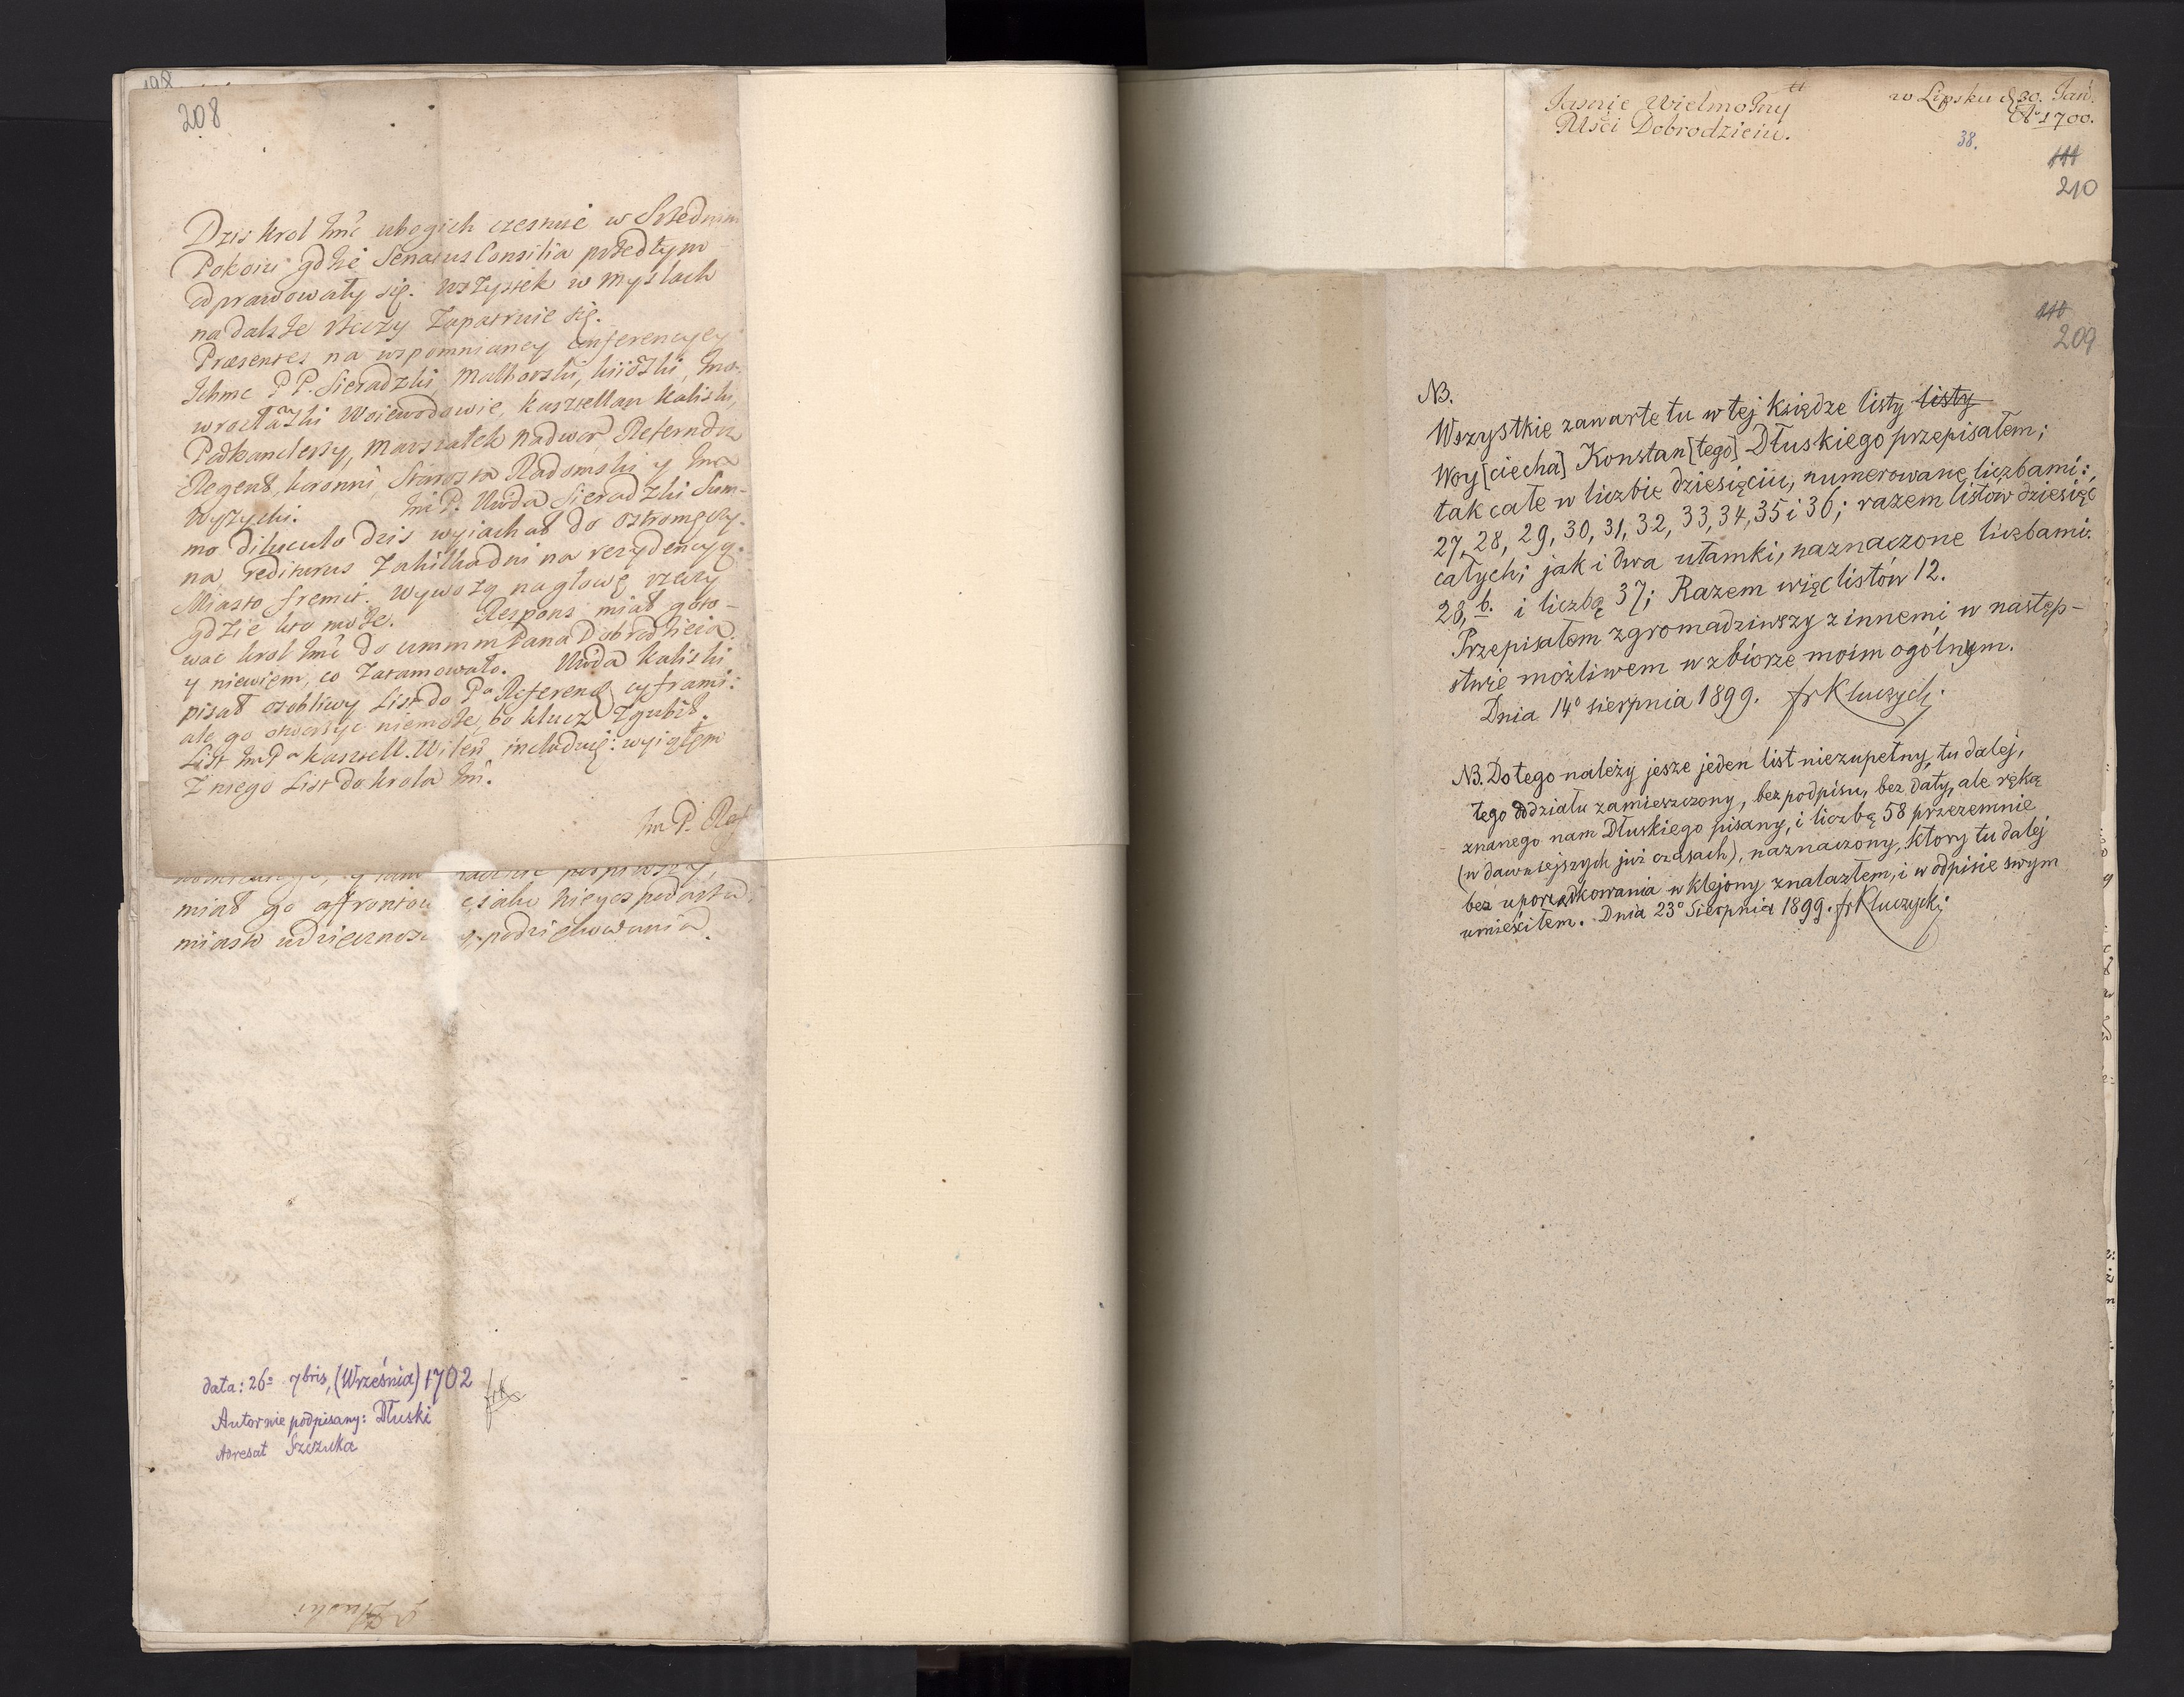 198
208
Dzis krol Jmć ubogich czestuie w Srzednim
Pokoiu gdzie Senatus Consilia przedtym
odprawowały się. Wszystek w myslach
na dalsze rzeczy zapatruie się.
Præsentes na wspomnianey conferencyey
Ichmc PP. Sieradzki, Malborski, kiiowski, Ino-
wrocławski Woiewodowie, Kasztellan Kaliski,
Podkanclerzy, Marszałek Nadwor. Referendarz
Regent, koronni, Starosta Radomski y
Wyszycki. Im P. Wda Sieradzki Sum-
mo diluculo dzis wyiachał do
na, rediturus za kilka dni na rezydencyą.
Miasto fremit. Wywożą na głowę rzeczy
gdzie kto może. Respons miał goto-
wać krol Jmć do ummm Pana Dobrodzieia
y niewiem, co zatamowało. Wda kaliski
pisał osobliwy List do Pa Referend. cyframi:
ale go otworzyc niemoże, bo klucz zgubił.
List Im Pa Kasztell. Wileń. includuię: wyiąłem
z niego List do krola Jmć.
Im P. Ref
miał go affrontow
miasto udzięcznosc y podziękowania.
data: 26= 7bris, (Września) 1702
Autor nie podpisany: Dłuski
Adresat Szczuka
Dłuski
Jasnie Wielmożny
Mści Dobrodzieiu.
w Lipsku d. 30. Jań.
Ao 1700.
38.
111
210
110
209
NB.
Wszystkie zawarte tu w tej księdze listy listy
Woy[ciecha] Konstan[tego] Dłuskiego przepisałem;
tak całe w liczbie dziesięciu, numerowane liczbami:
27, 28, 29, 30, 31, 32, 33, 34, 35 i 36; razem listów dziesięć
całych; jak i dwa ułamki, naznaczone liczbami:
28,b. i liczbą 37; Razem więc listów 12.
Przepisałem zgromadziwszy z innemi w następ-
stwie możliwem w zbiorze moim ogólnym.
Dnia 14o sierpnia 1899. fr Kluczycki.
NB. Do tego należy jesze jeden list niezupełny, tu dalej,
tego oddziału zamieszczony, bez podpisu, bez daty, ale ręką
znanego nam Dłuskiego pisany, i liczbą 58 przezemnie
(w dawniejszych już czasach), naznaczony, ktory tu dalej
bez uporządkowania wklejony znalazłem, i w odpisie swym
umieściłem. Dnia 23o Sierpnia 1899. fr Kluczycki